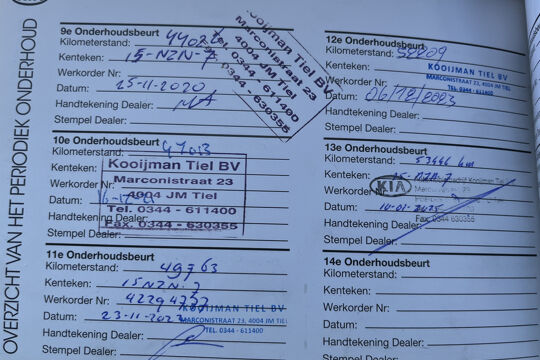 KIA
OVERZICHT VAN HET PERIODIEK ONDERHOUD
9e Onderhoudsbeurt
Kilometerstand:
Kenteken: 15-NZN-7
Werkorder Nr:
Datum: 25-11-2020
Handtekening Dealer:
Stempel Dealer:
Kooijman Tiel BV
Marconistraat 23
4004 JM Tiel
Tel. 0344 - 611400
Fax. 0344 - 630355
10e Onderhoudsbeurt
Kilometerstand: 47013
Kenteken:
Werkorder Nr:
Datum:
Handtekening Dealer:
Stempel Dealer:
Kooijman Tiel BV
Marconistraat 23
4004 JM Tiel
Tel. 0344 - 611400
Fax. 0344 - 630355
11e Onderhoudsbeurt
Kilometerstand: 49763
Kenteken: 15NZN-7
Werkorder Nr:
Datum: 23-11-202
Handtekening Dealer:
Stempel Dealer:
KOOIJMAN TIEL BV
MARCONISTRAAT 23, 4004 JM TIEL
TEL: 0344 - 611400
12e Onderhoudsbeurt
Kilometerstand:
Kenteken:
Werkorder Nr:
Datum: 06/12/2023
Handtekening Dealer:
Stempel Dealer:
KOOIJMAN TIEL BV
MARCONISTRAAT 23, 4004 JM TIEL
13e Onderhoudsbeurt
Kilometerstand: 53446 km
Kenteken: 15-NZN-7
Werkorder Nr:
Datum: 14-01-2025
Handtekening Dealer:
Stempel Dealer:
KIA
14e Onderhoudsbeurt
Kilometerstand:
Kenteken:
Werkorder Nr:
Datum:
Handtekening Dealer:
Stempel Dealer: